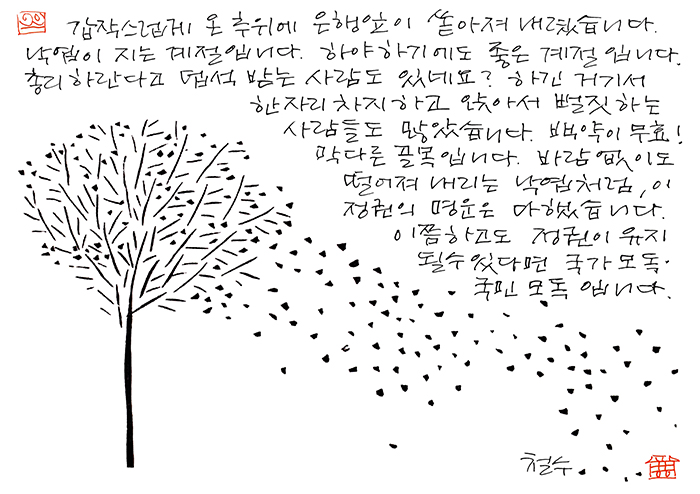 갑작스럽게 온 추위에 은행잎이 쏟아져 내렸습니다.
낙엽이 지는 계절입니다. 하야하기에도 좋은 계절입니다.
총리하란다고 덥석 받는 사람도 있데요? 하긴 거기서
한자리 차지하고 앉아서 벌짓하는
사람들도 많았습니다. 백약이 무효!
막다른 골목입니다. 바람 없이도
떨어져 내리는 낙엽처럼, 이
정권의 명운은 다했습니다.
이쯤하고도 정권이 유지
될수있다면 국가모독·
국민모독입니다.
철수